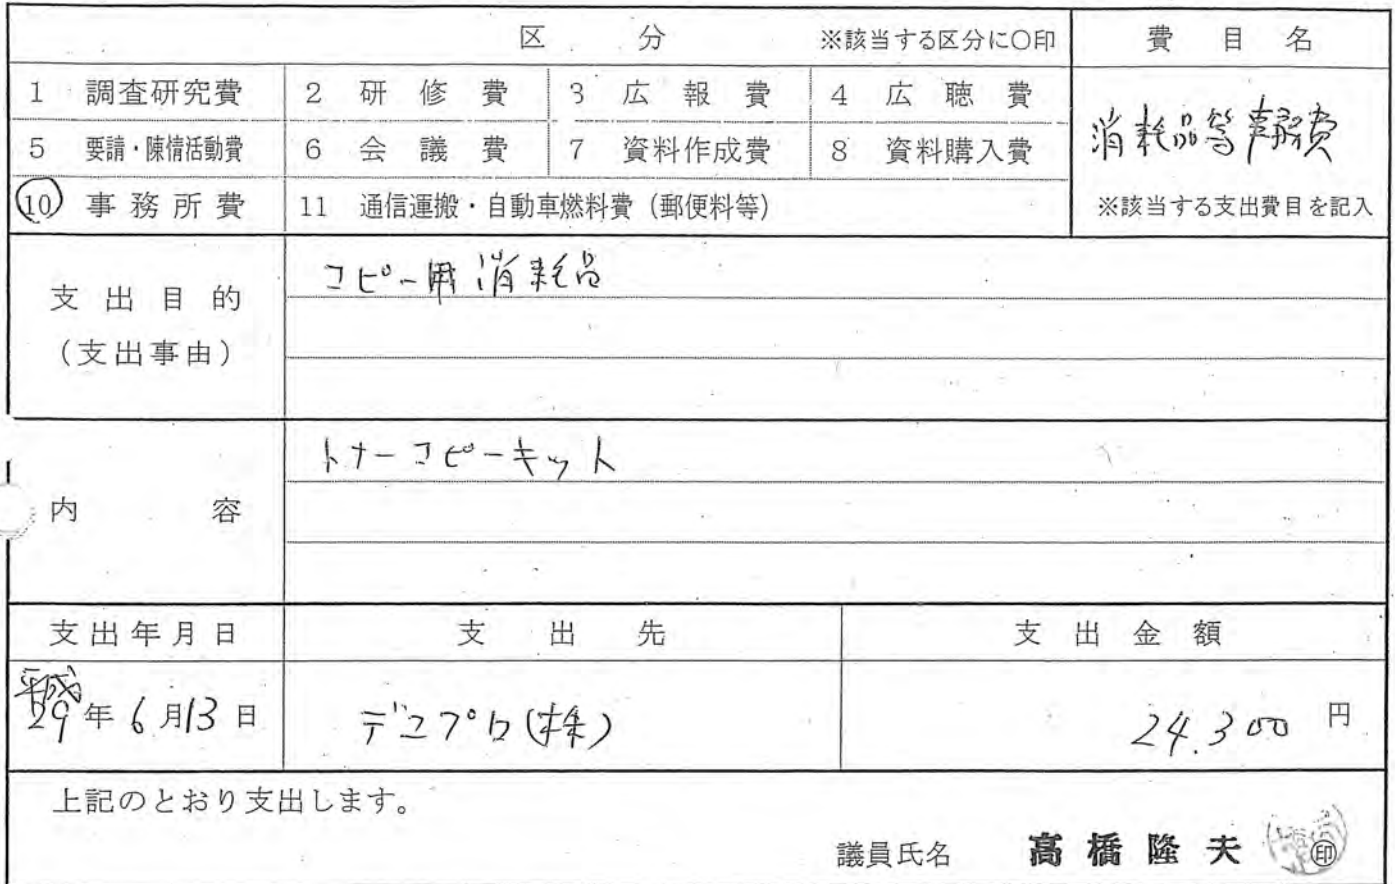 区 分 ※該当する区分に○印 費目名
1 調査研究費 2 研修費 3 広報費 4 広聴費
消耗品等事務費
5 要請・陳情活動費 6 会議費 7 資料作成費 8 資料購入費
10 事務所費 11 通信運搬・自動車燃料費(郵便料等) ※該当する支出費目を記入
コピー用消耗品
支出目的
(支出事由)
トナーコピーキット
内容
支出年月日 支出先 支出金額
平成
29年6月13日 デュプロ(株) 24.300円
上記のとおり支出します。
議員氏名 高橋隆夫 ㊞